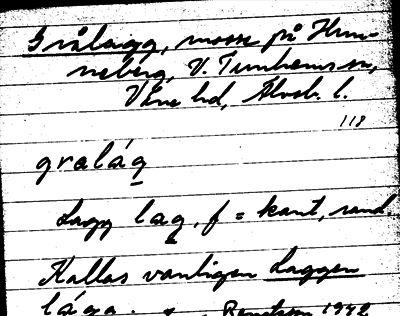 Grålagg, mosse på Hunne-
neberg, V. Tunhems sn,
Väne hd, Älvsb. l.
118
gralág
Lagg lag, f = kant, rand
Kallas vanligen Laggen
lága. Bengtsson 1942